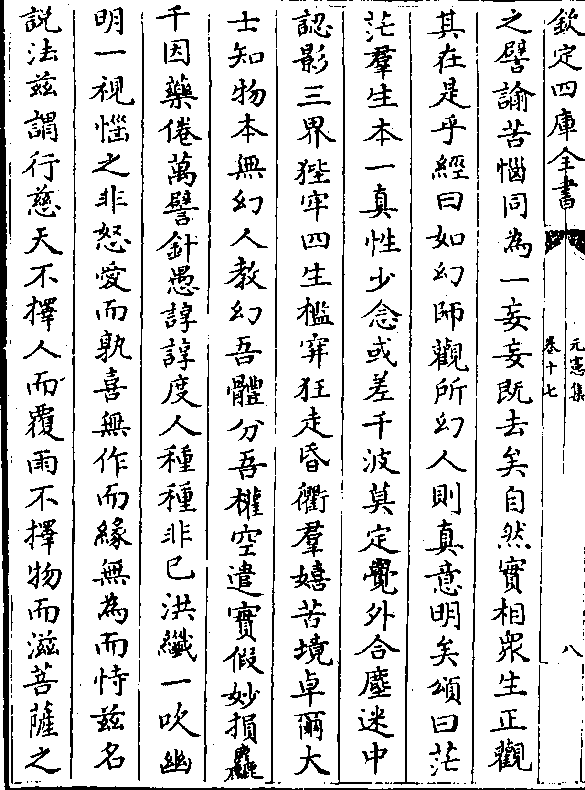 欽定四庫全書
元憲集
卷十七
八
之譬諭苦惱同為一妄妄既去矣自然實相衆生正觀
其在是乎經曰如幻師觀所幻人則真意明矣頌曰茫
茫羣生本一真性少念或差千波莫定覺外合塵迷中
認影三界狴牢四生檻穽狂走昏衢羣嬉苦境卓爾大
士知物本無幻人教幻吾體分吾權空遣實假妙損麤
千因藥倦萬譬針愚諄諄度人種種非已洪纖一吹幽
明一視惱之非怒愛而孰喜無作而緣無為而恃兹名
説法兹謂行慈天不擇人而覆雨不擇物而滋菩薩之